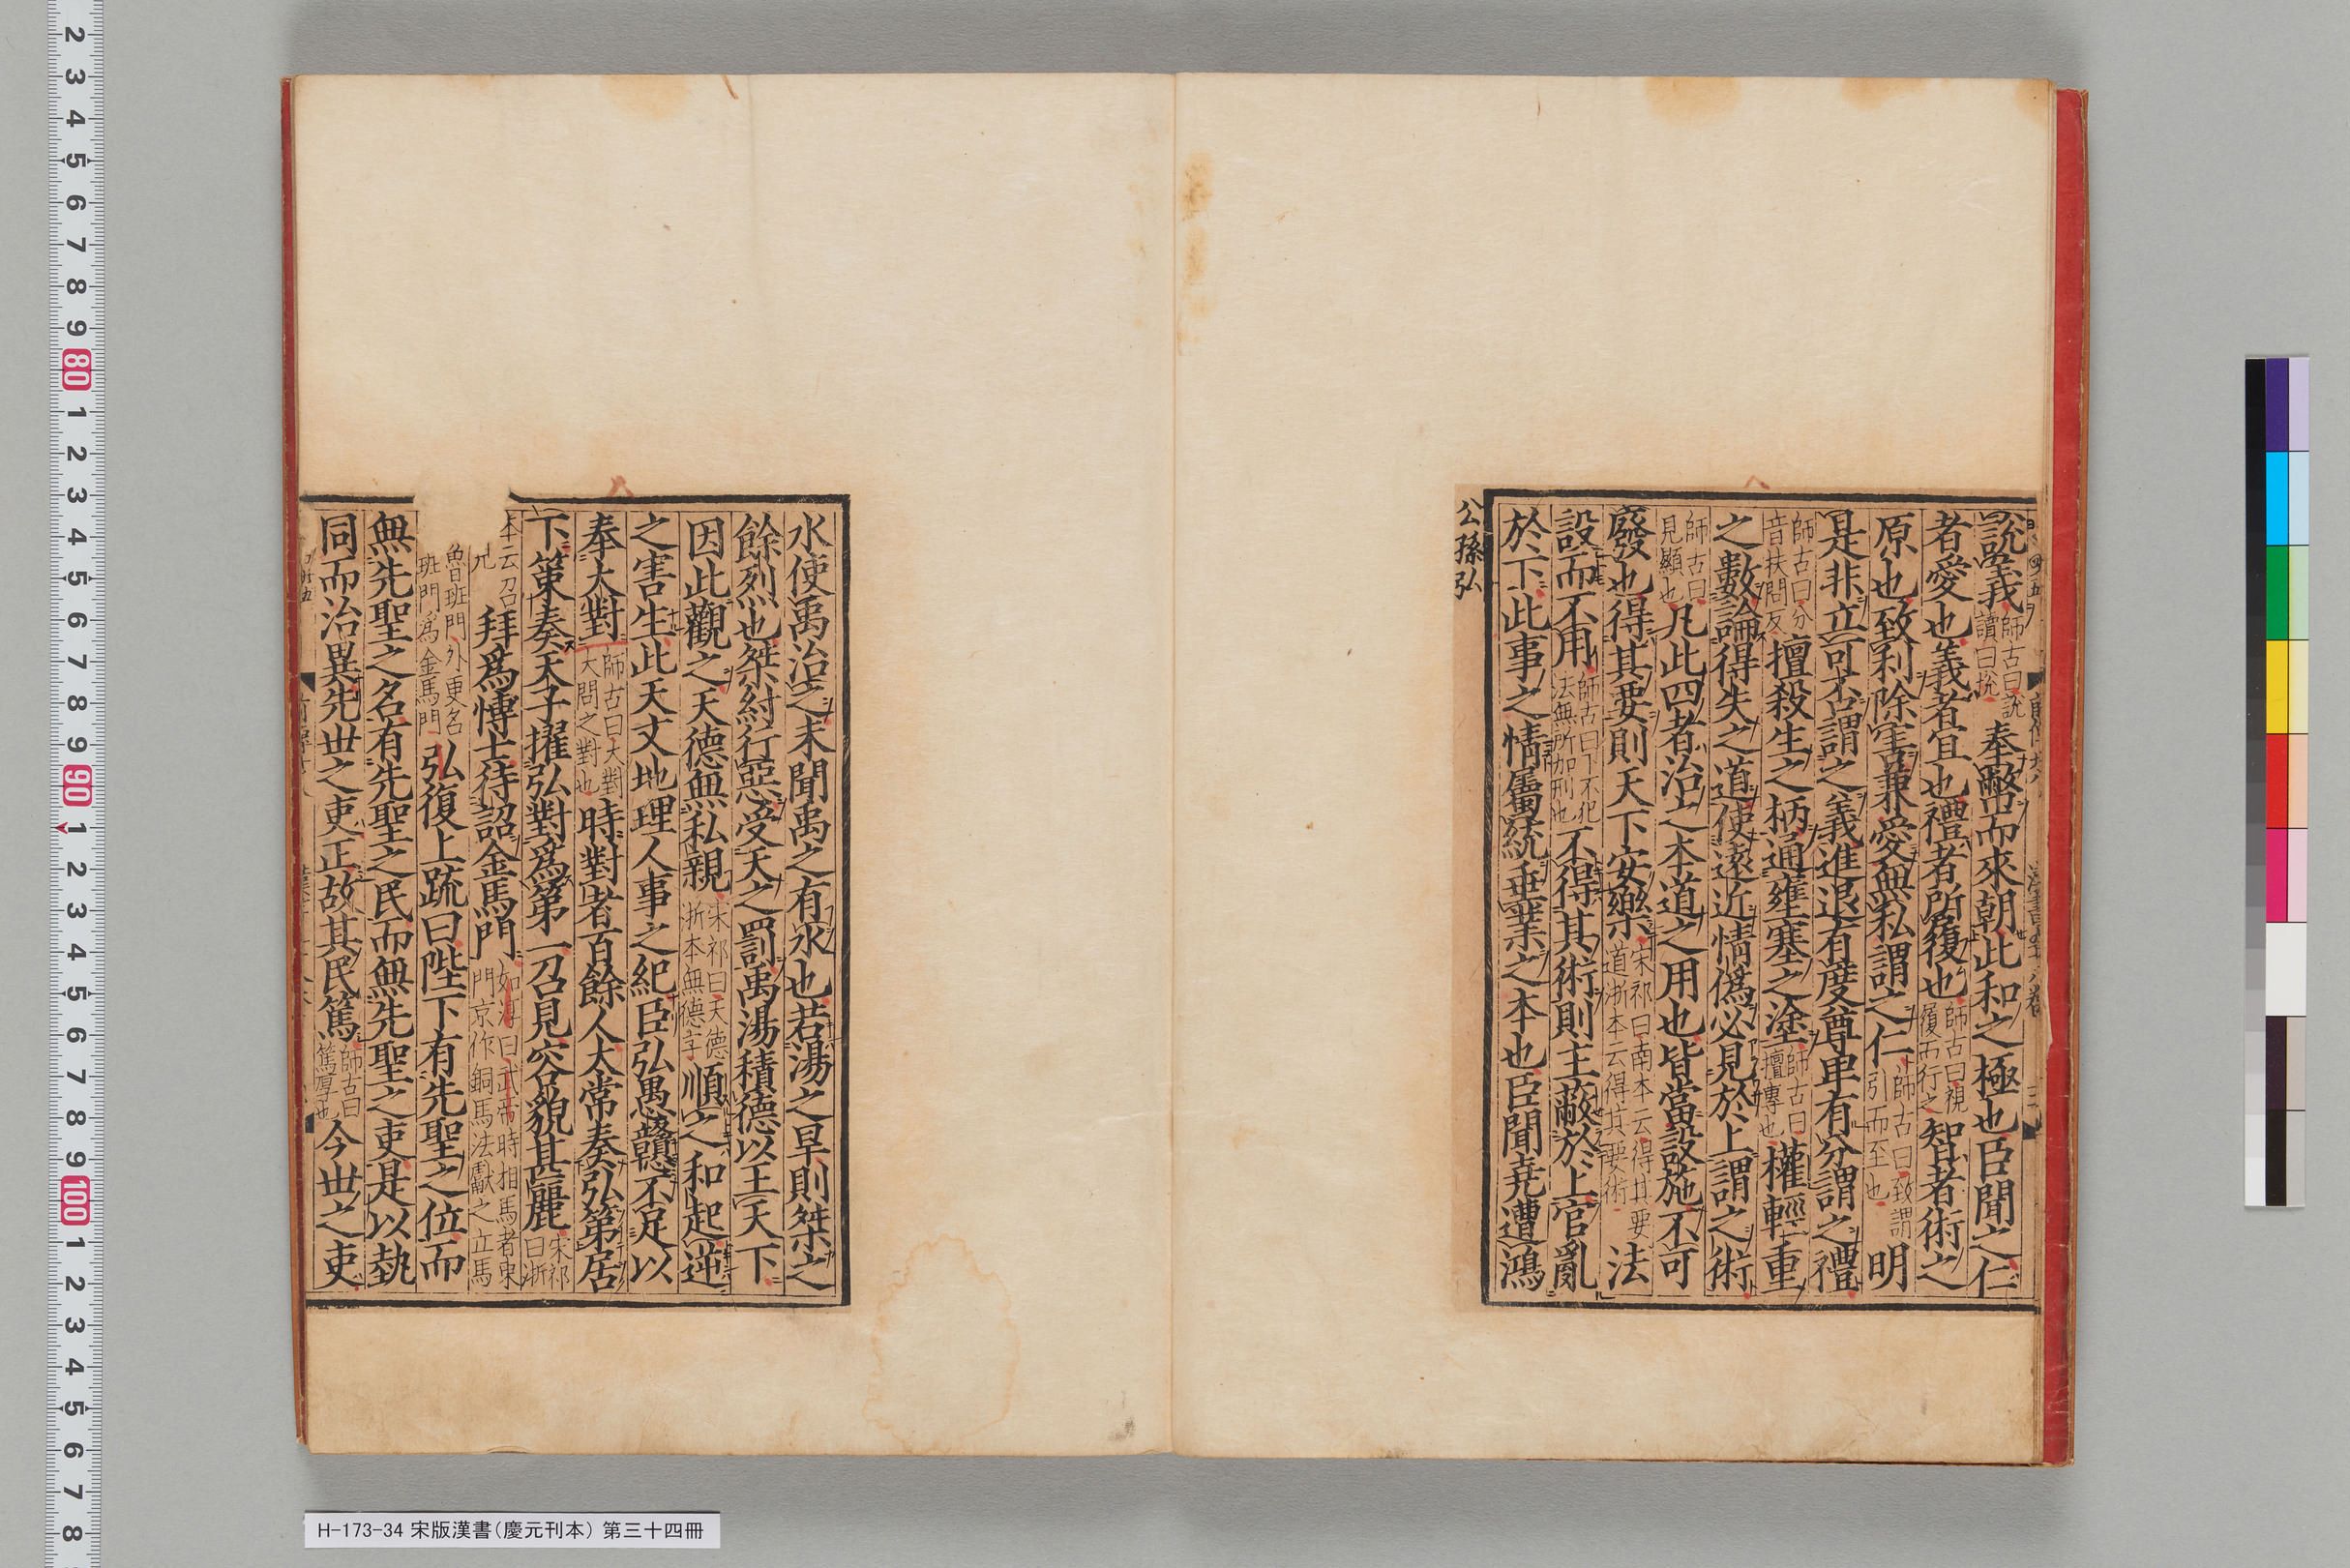 說義師古曰說讀曰悅奉幣而來朝此和之極也臣聞之仁
者愛也義者宜也禮者所履也師古曰視履而行之智者術之
原也致利除害兼愛無私謂之仁師古曰致謂引而至也明
是非立可否謂之義進退有度尊卑有分謂之禮
師古曰分音扶問反擅殺生之柄通壅塞之塗師古曰擅專也權輕重
之數論得失之道使遠近情僞必見於上謂之術
師古曰見顯也凡此四者治之本道之用也皆當設施不可
廢也得其要則天下安樂宋祁曰南本云得其要道浙本云得其要術法
設而不用師古曰下不犯法無所加刑也不得其術則主蔽於上官亂
於下此事之情屬統垂業之本也臣聞堯遭鴻
公孫弘
水使禹治之未聞禹之有水也若湯之旱則桀之
餘烈也桀紂行惡受天之罰禹湯積德以王天下
因此觀之天德無私親宋祁曰天德浙本無德字順之和起逆
之害生此天文地理人事之紀臣弘愚戇不足以
奉大對師古曰大對大問之對也時對者百餘人太常奏弘第居
下策奏天子擢弘對爲第一召見容貌甚麗宋祁曰浙
本云召兒拜爲博士待詔金馬門如淳曰武帝時相馬者東門京作銅馬法獻之立馬
魯班門外更名班門爲金馬門弘復上疏曰陛下有先聖之位而
無先聖之名有先聖之民而無先聖之吏是以埶
同而治異先世之吏正故其民篤師古曰篤厚也今世之吏
H-173-34 宋版漢書（慶元刊本） 第三十四冊
2
3
4
5
6
7
8
9
80
1
2
3
4
5
6
7
8
9
90
1
2
3
4
5
6
7
8
9
100
1
2
3
4
5
6
7
8